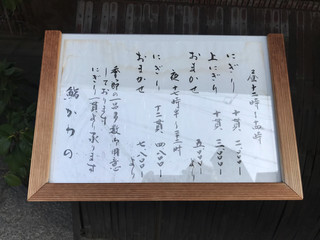 昼 十二時〜二時
にぎり 十貫 二、〇〇〇
上にぎり 十貫 三、〇〇〇
おまかせ 五、〇〇〇〜より
夜 十七時半〜
にぎり 十二貫 四、八〇〇〜
おまかせ 七、八〇〇〜より
季節の一品多数御用意
しております
にぎり一貫より承ります
鮨かわの